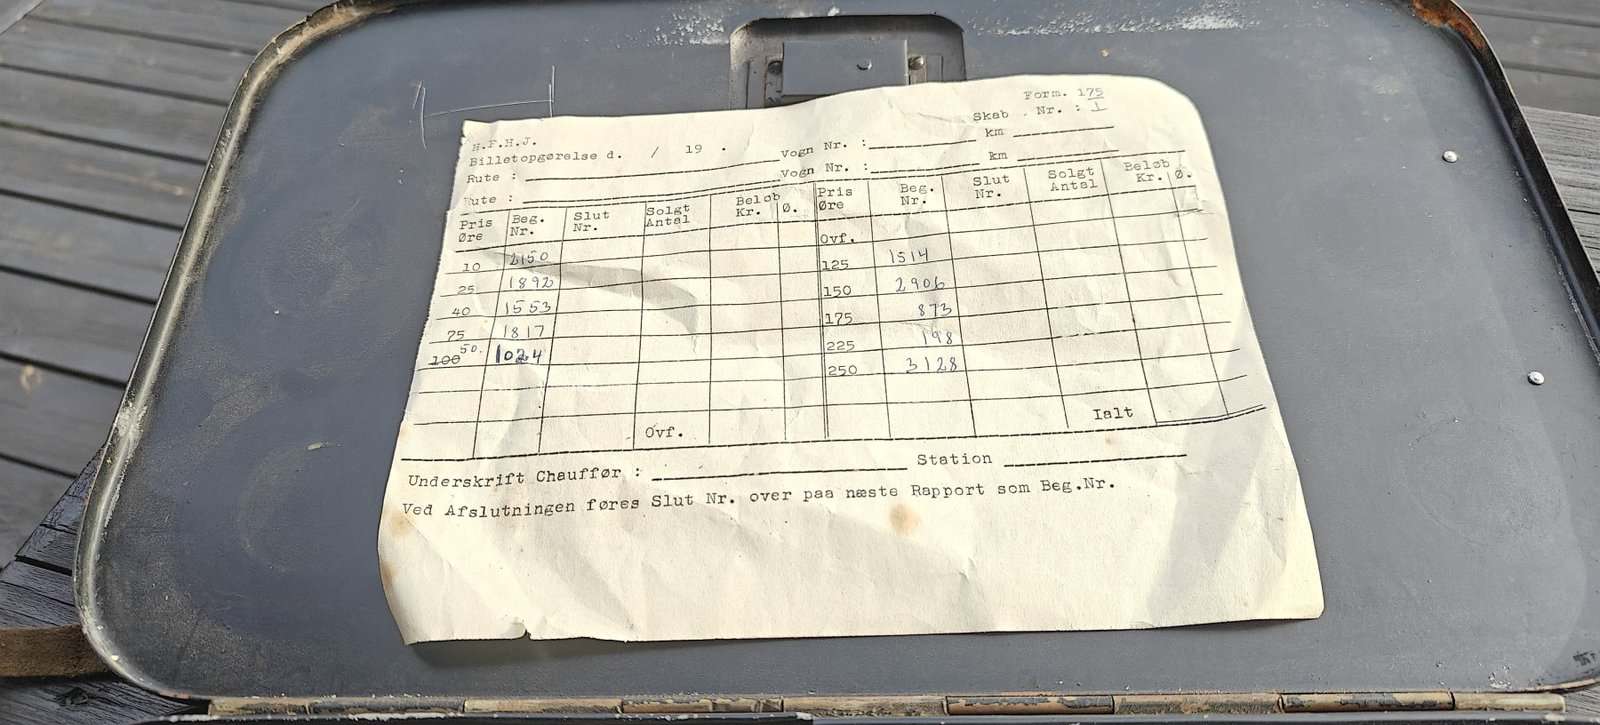 Form. 175
Skab Nr. : 1
H.F.H.J.
Billetopgørelse d. / 19 . Vogn Nr. : km
Rute : Vogn Nr. : km
Rute :
Pris Øre Beg. Nr. Slut Nr. Solgt Antal Beløb Kr. Ø. Pris Øre Beg. Nr. Slut Nr. Solgt Antal Beløb Kr. Ø.
Ovf.
10 2150 125 1514
25 1892 150 2906
40 1553 175 873
75 1817 225 198
100 50. 1024 250 3128
Ovf. Ialt
Underskrift Chauffør : Station
Ved Afslutningen føres Slut Nr. over paa næste Rapport som Beg.Nr.